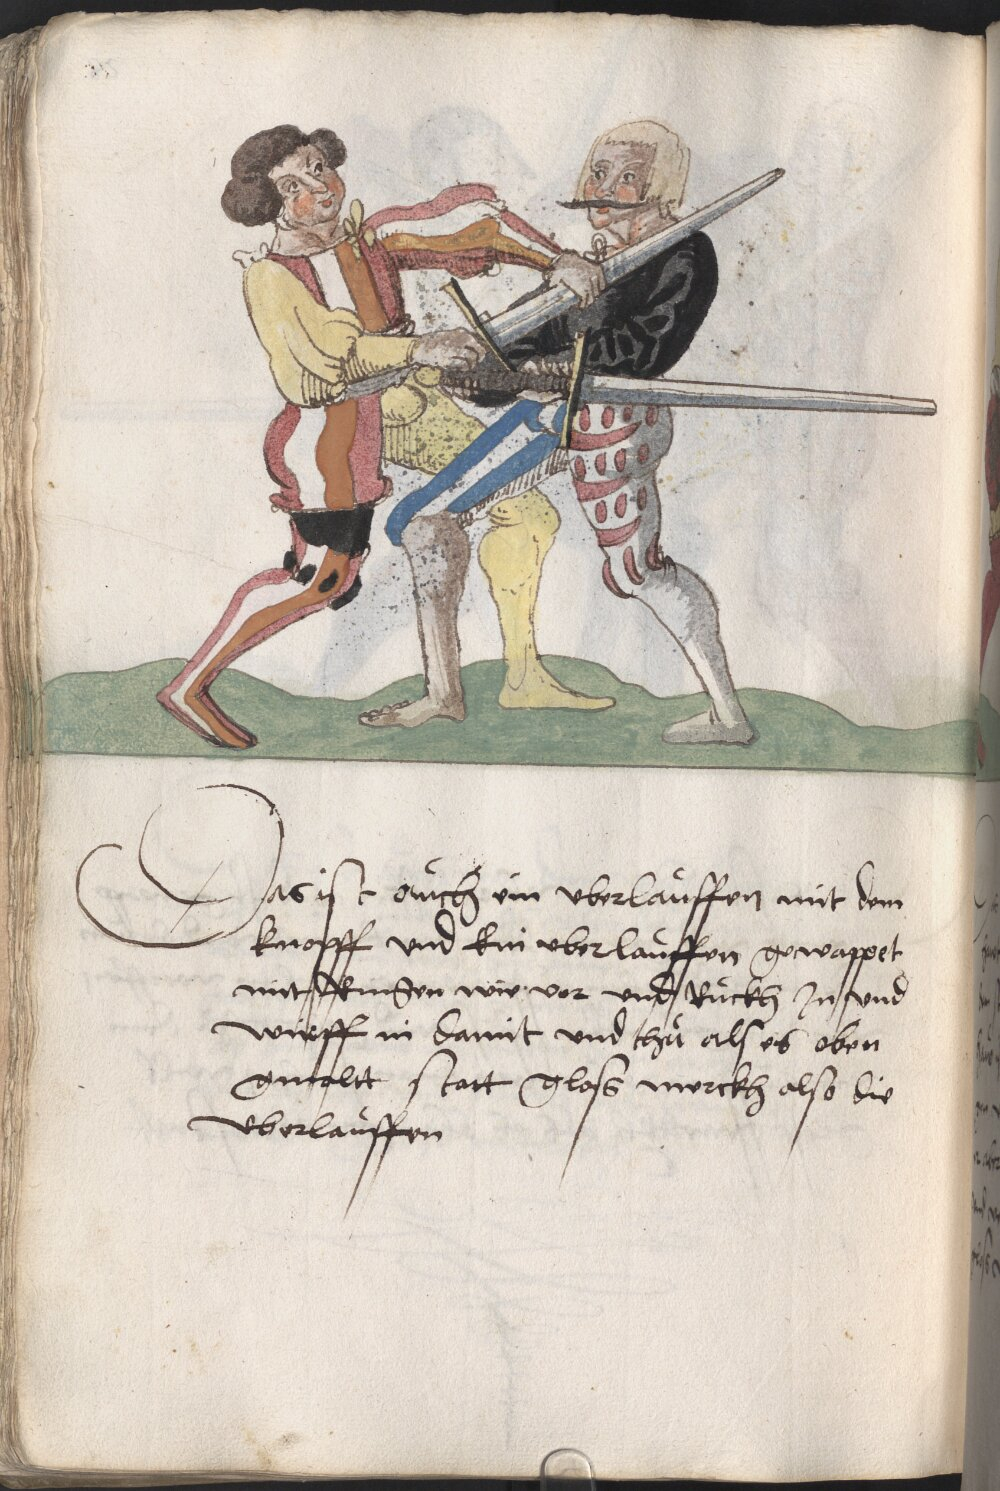 Das ist auch ein uberlauffen mit dem
knopff und ein uberlauffen gewappet
mit ringen wie vor und Ruckh In und
wirff in damit und thu als es oben
gmaltt statt gloss merckh also die
uberlauffen